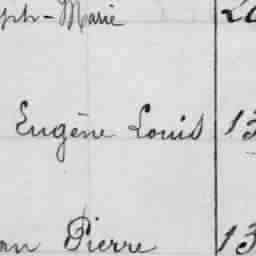 ph-Marie
Eugène Louis 13
an Pierre 13